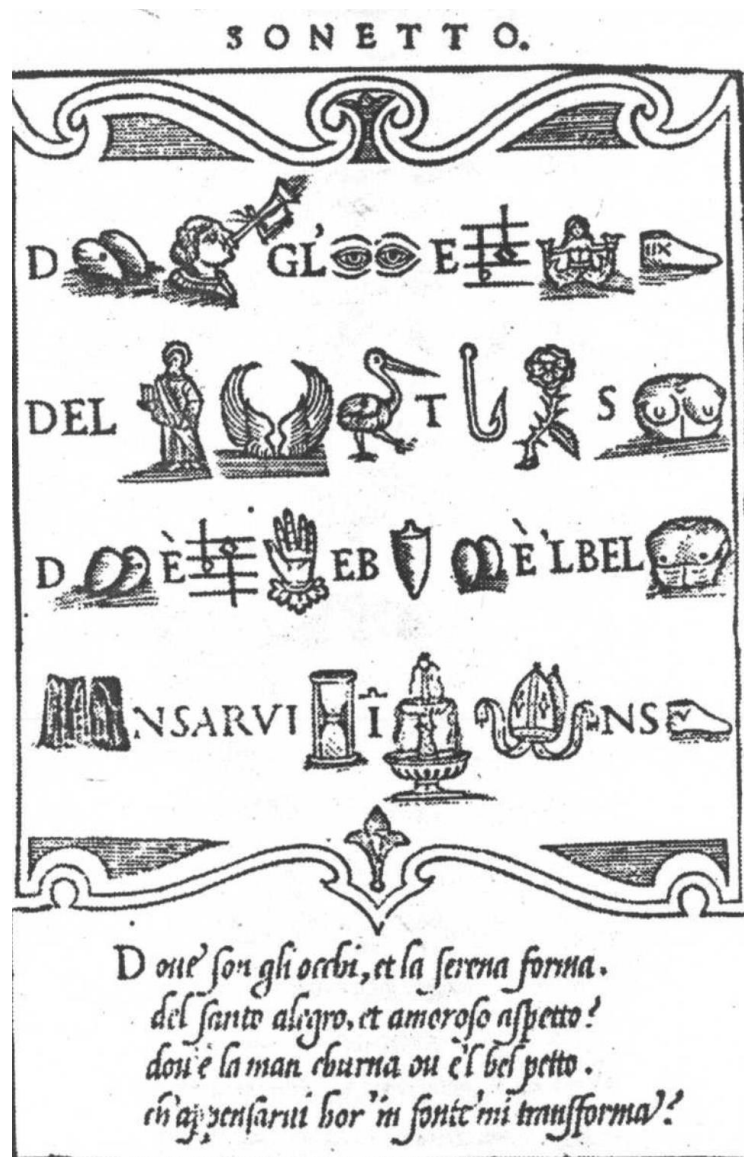 SONETTO.
D GL' E
DEL T S
D È EB È'LBEL
NSARVI Ī NS
Doue' son gli occhi, et la serena forma.
del santo alegro, et amoroso aspetto?
dou'è la man eburna ou è'l bel petto.
ch'appensarui hor'in fonte'mi transforma'?